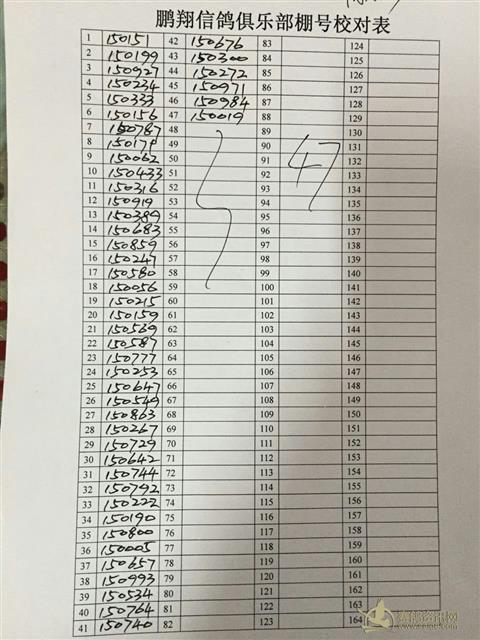 鹏翔信鸽俱乐部棚号校对表
1 150151 42 150676 83 124
2 150199 43 150300 84 125
3 150927 44 150272 85 126
4 150234 45 150971 86 127
5 150333 46 150984 87 128
6 150156 47 150019 88 129
7 150787 48 89 130
8 49 90 47 131
9 150062 50 91 132
10 150433 51 92 133
11 150316 52 93 134
12 150919 53 94 135
13 150389 54 95 136
14 150683 55 96 137
15 150859 56 97 138
16 150247 57 98 139
17 150580 58 99 140
18 150056 59 100 141
19 150215 60 101 142
20 150159 61 102 143
21 150539 62 103 144
22 150587 63 104 145
23 150777 64 105 146
24 150253 65 106 147
25 150647 66 107 148
26 150549 67 108 149
27 150863 68 109 150
28 150267 69 110 151
29 150729 70 111 152
30 150642 71 112 153
31 150744 72 113 154
32 150792 73 114 155
33 150222 74 115 156
34 150190 75 116 157
35 150800 76 117 158
36 150005 77 118 159
37 150657 78 119 160
38 150993 79 120 161
39 150534 80 121 162
40 150764 81 122 163
41 150740 82 123 164